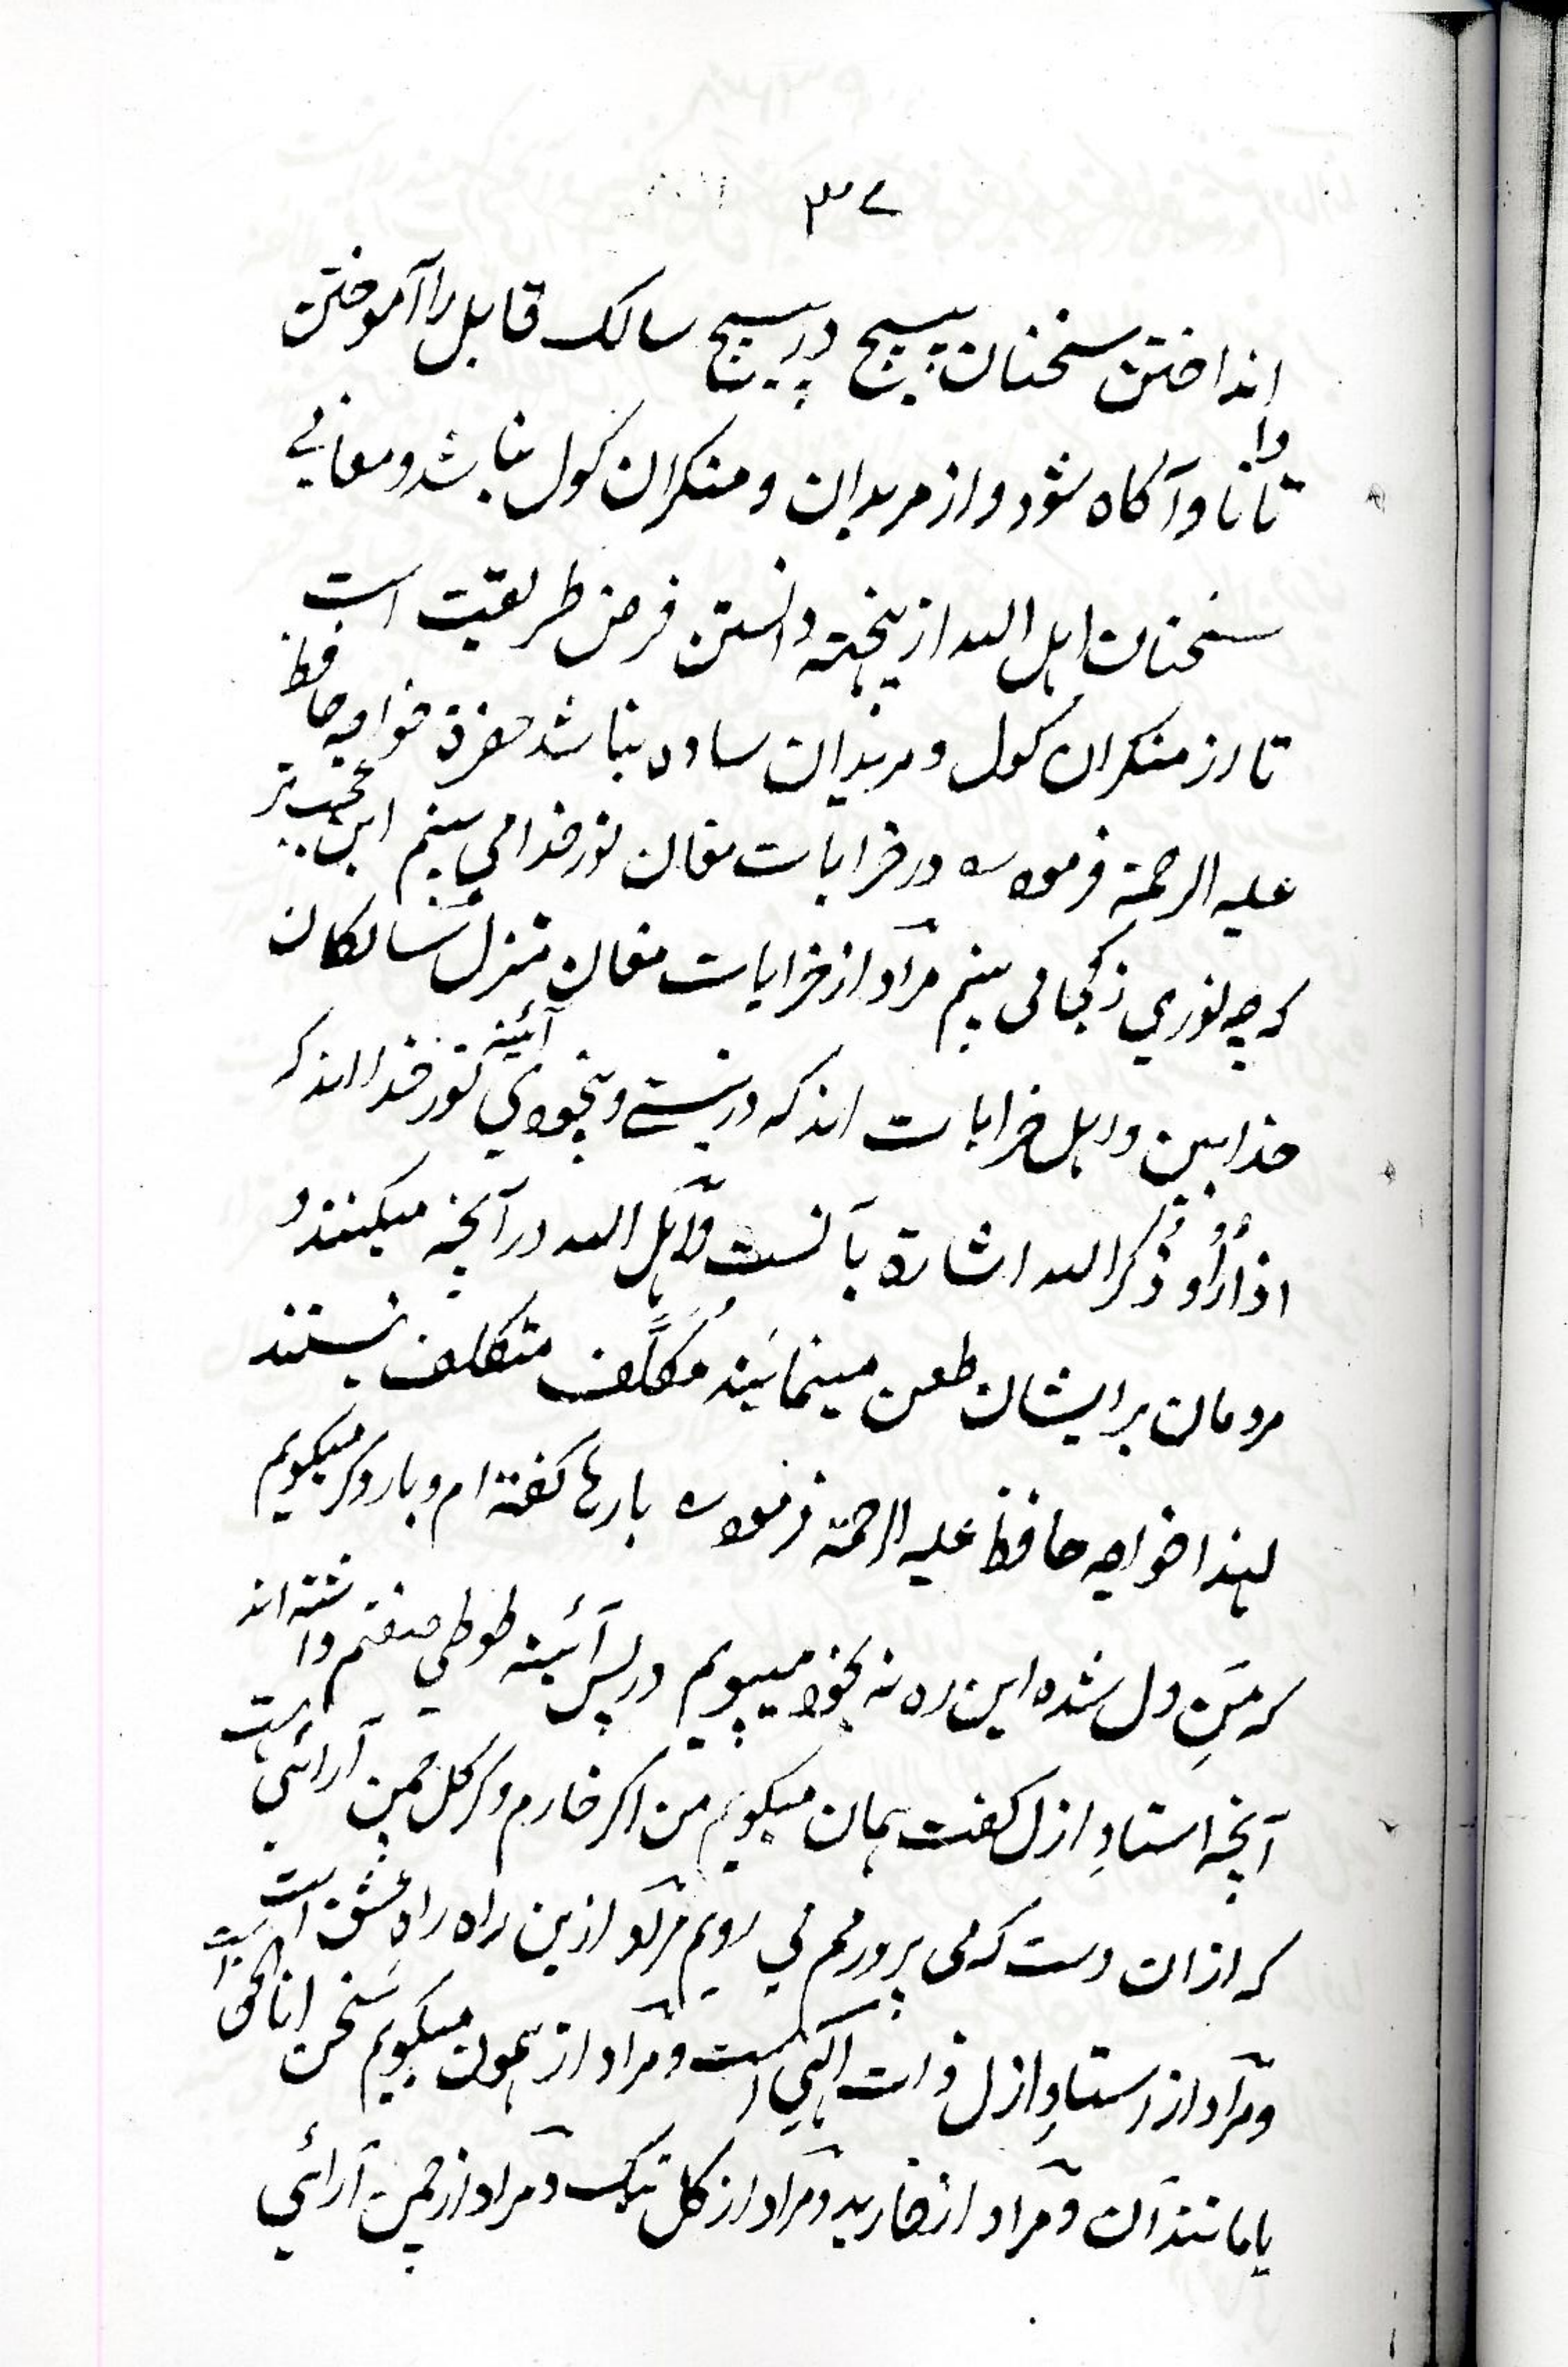 ۳۷
انداختن سخنان پیچ در پیچ سالک قابل را آموختن
تا دانا و آگاه شود و از مریدان و منکران کول نباشد و معانی
سخنان اهل الله از پنجهته دانستن فرض طریقت است
تا از منکران کول و مریدان ساده نباشد حضرة خواجه حافظ
علیه الرحمة فرموده در خرابات مغان نور خدا می بینم این عجب تر
که چه نوری ز کجا می بینم مراد از خرابات مغان منزل سالکان
خدا بین و اهل خرابات اند که در نیستی و بیخودی آئینه نور خدا اند که
اذا رُأُو ذُکر الله اشارة بآنست و اهل الله در آنچه میکنند و
مردمان بر ایشان طعن مینمائند مُکلَّف متکلف نیستند
لهذا خواجه حافظ علیه الرحمة فرموده بارها گفته ام و بار دکر میکویم
که منِ دل شده این ره نه بخود میپویم در پس آئینه طوطی صفتم داشته اند
آنچه استادِ ازل گفت همان میکویم من اکر خارم و کر کل چمن آرائی هست
که ازان دست که می پروردم می رویم مراد ازین راه راه عشق است
و مراد از استادِ ازل ذات الهی است و مراد از همون میکویم سخن انا الحق است
یا مانند آن و مراد از خار بد و مراد از کل نیک و مراد از چمن آرائی